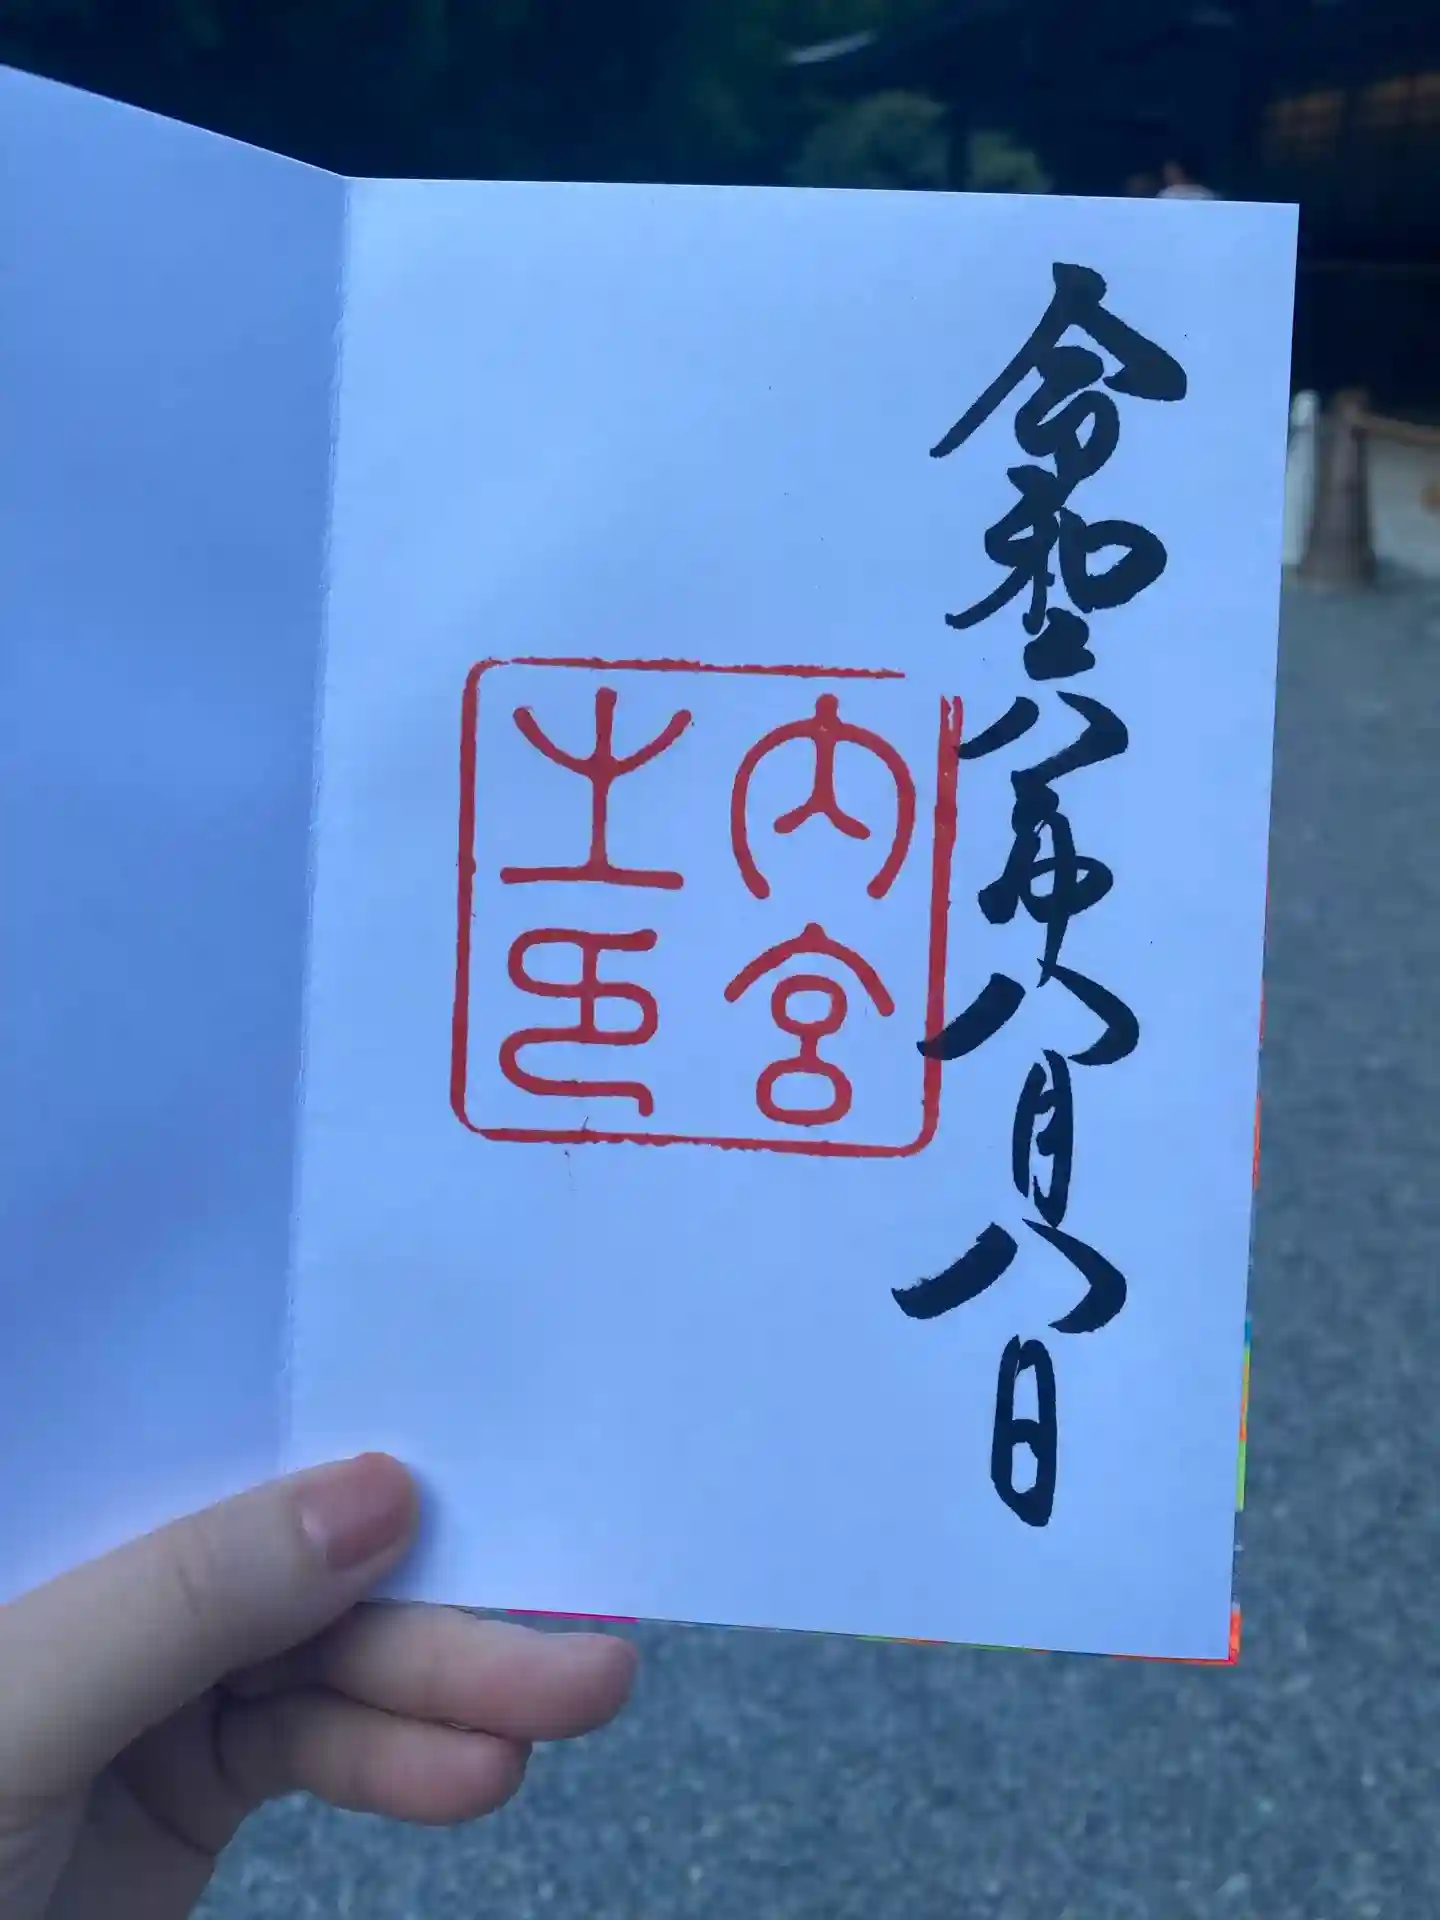 令和六年八月八日
内宮
之印